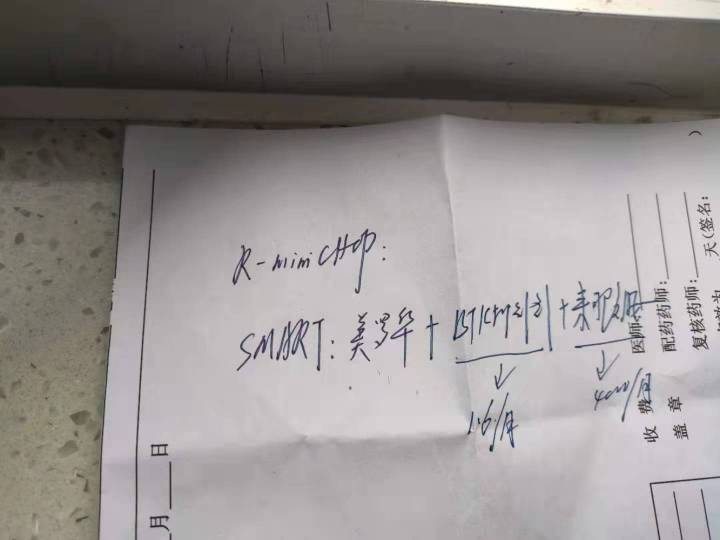 R-miniCHOP:
SMART: 美罗华 + BTK抑制剂 + 来那度胺
↓ ↓
1.6/月 4000/月
医师:
配药药师:
复核药师:
天(签名:
)
收费
盖章
月 日